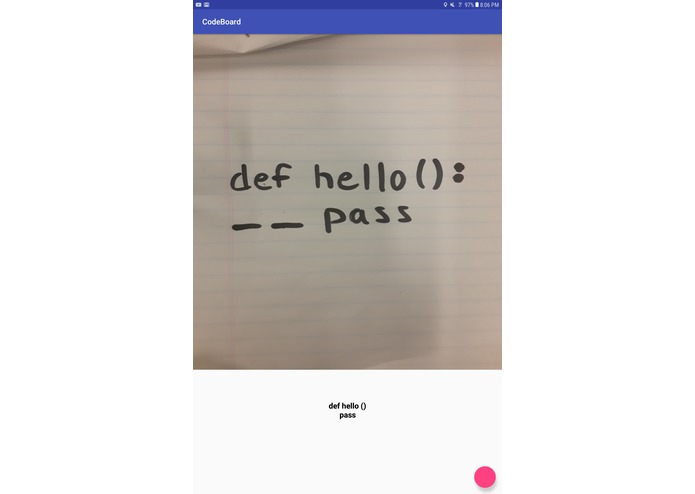 97% 8:06 PM
CodeBoard
def hello():
_ _ pass
def hello ()
pass